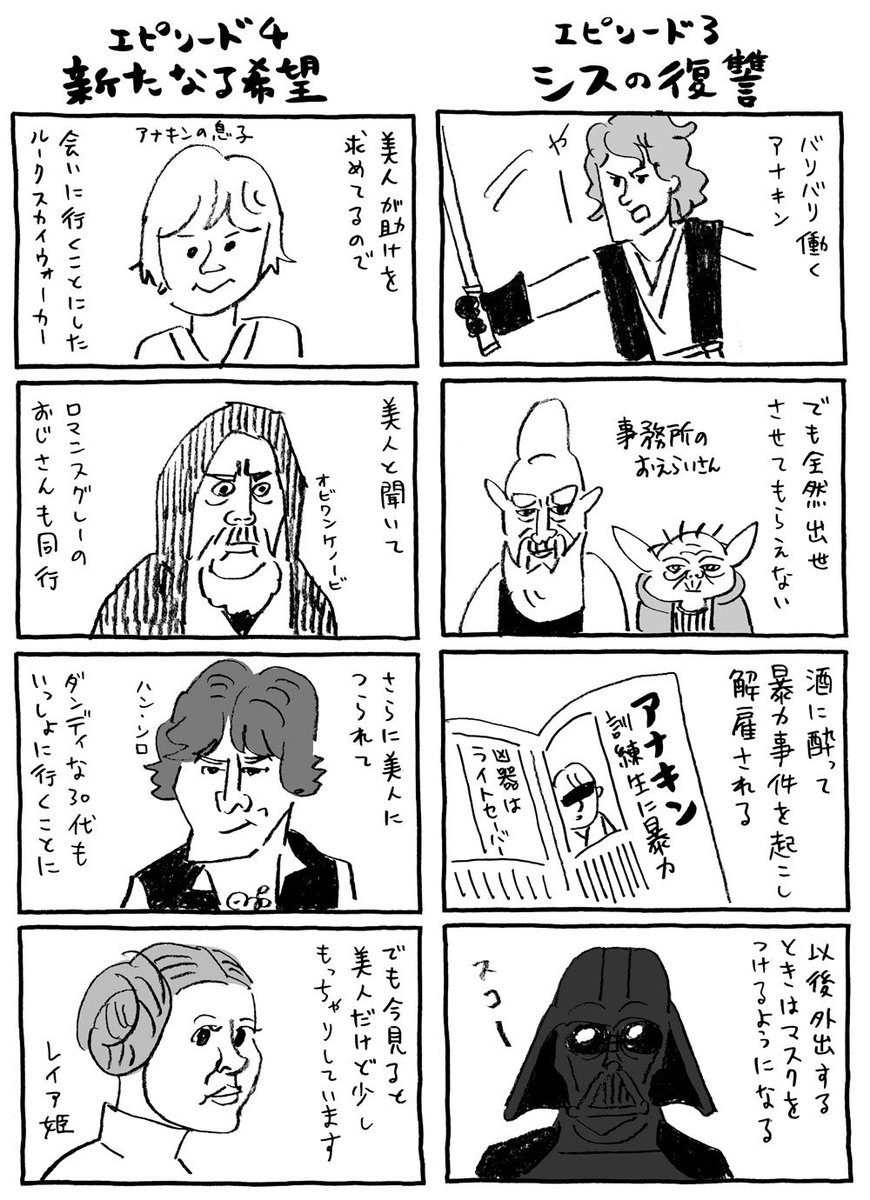 エピソード3
シスの復讐
バリバリ働く
アナキン
やー
でも全然出世
させてもらえない
事務所の
おえらいさん
酒に酔って
暴力事件を起こし
解雇される
アナキン
訓練生に暴力
凶器は
ライトセーバー
以後外出する
ときはマスクを
つけるようになる
スコー
エピソード4
新たなる希望
美人が助けを
求めてるので
アナキンの息子
会いに行くことにした
ルークスカイウォーカー
美人と聞いて
オビワンケノービ
ロマンスグレーの
おじさんも同行
さらに美人に
つられて
ハン・ソロ
ダンディな30代も
いっしょに行くことに
でも今見ると
美人だけど少し
もっちゃりしています
レイア姫